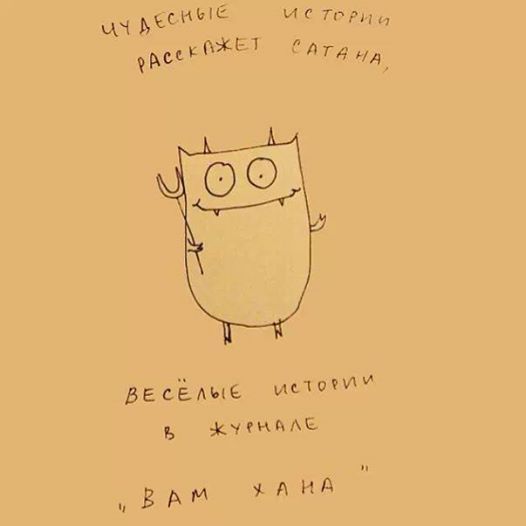 ЧУДЕСНЫЕ ИСТОРИИ
РАССКАЖЕТ САТАНА,
ВЕСЁЛЫЕ ИСТОРИИ
В ЖУРНАЛЕ
„ВАМ ХАНА"